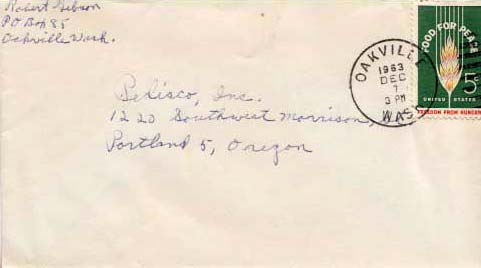 Robert Gibson
PO Box 85
Oakville Wash.
OAKVILLE
1963
DEC
7
3 PM
WASH
FOOD FOR PEACE
5c
UNITED STATES
FREEDOM FROM HUNGER
Belisco, Inc.
1220 Southwest Morrison,
Portland 5, Oregon